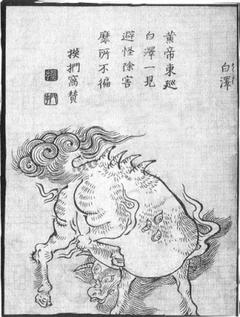 白澤
黃帝東巡
白澤一見
避怪除害
靡所不徧
摸捫窩賛